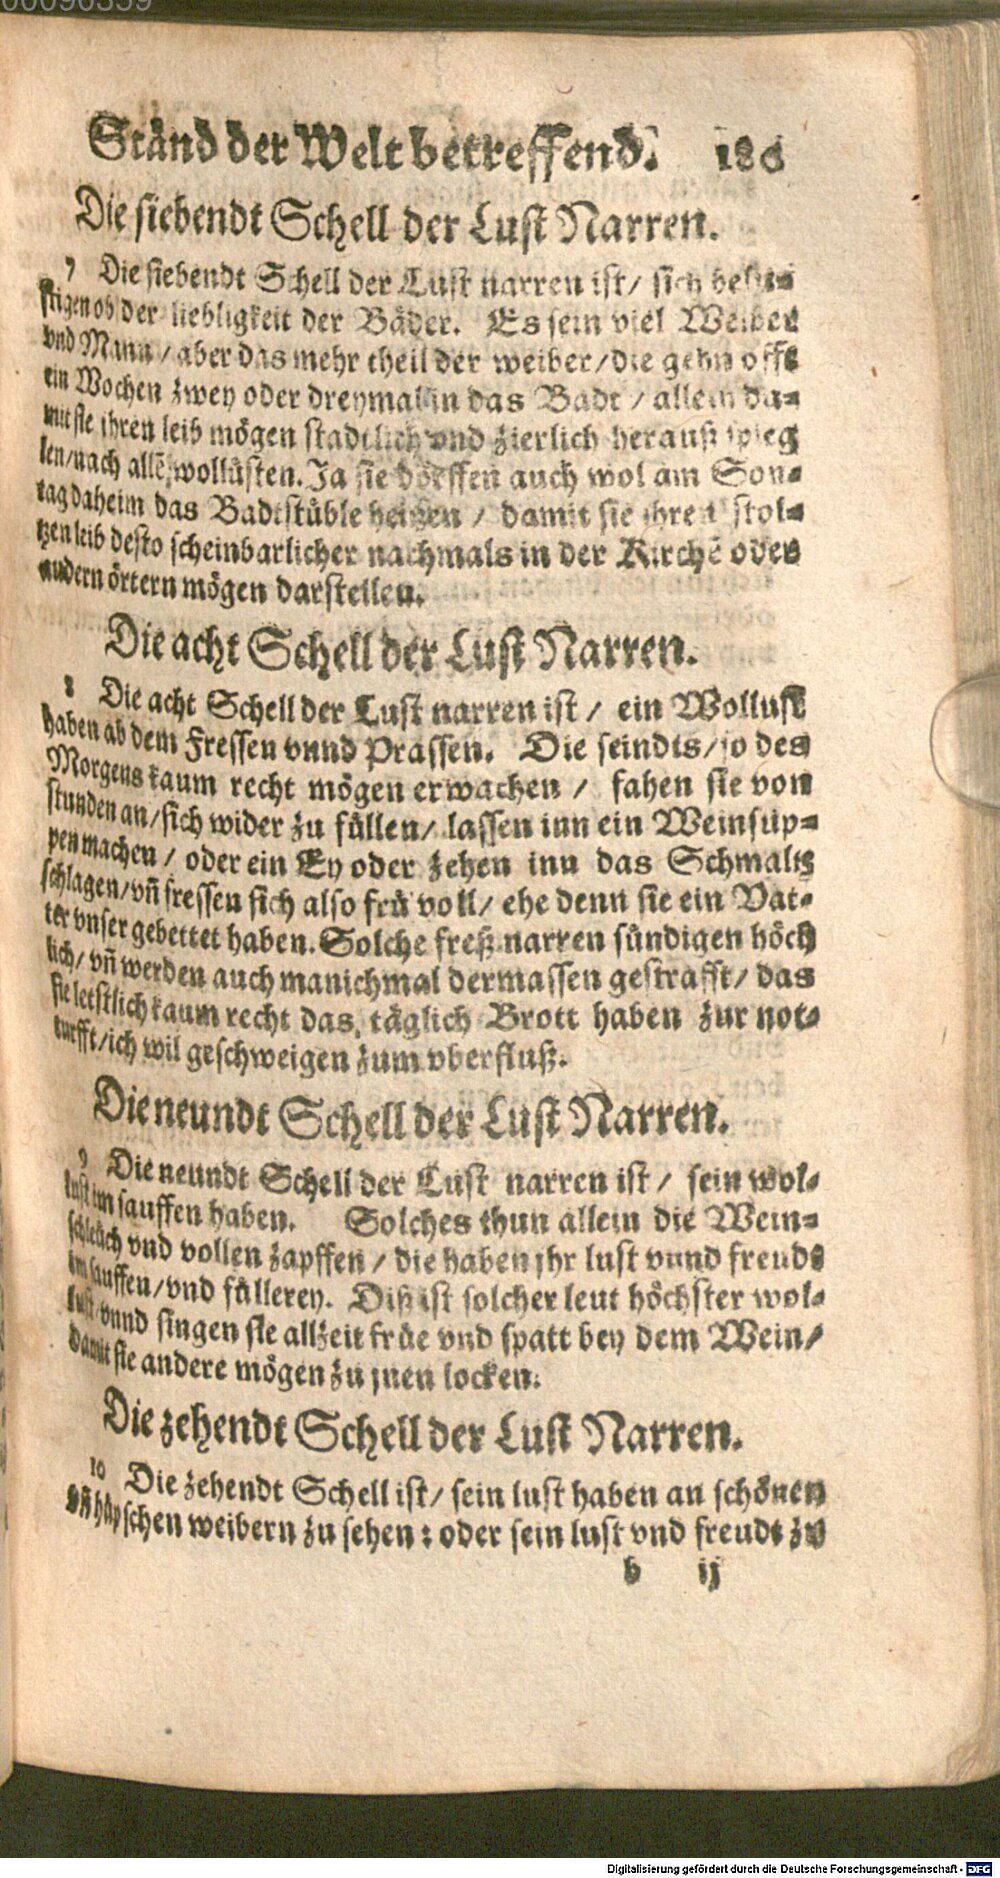 00090359
Ständ der Welt betreffend. 186
Die siebendt Schell der Lust Narren.
7 Die siebendt Schell der Lust narren ist/ sich belu-
stigen ob der liebligkeit der Bäder. Es sein viel Weiber
vnd Mann/ aber das mehr theil der weiber/ die gehn offt
ein Wochen zwey oder dreymal in das Badt/ allein da-
mit sie ihren leib mögen stadtlich vnd zierlich herauß spieg
len/ nach allẽ wollüsten. Ja sie dörffen auch wol am Son-
tag daheim das Badtstüble heitzen/ damit sie ihren stol-
tzen leib desto scheinbarlicher nachmals in der Kirchẽ oder
andern örtern mögen darstellen.
Die acht Schell der Lust Narren.
8 Die acht Schell der Lust narren ist/ ein Wollust
haben ab dem Fressen vnnd Prassen. Die seindts/ so des
Morgens kaum recht mögen erwachen/ fahen sie von
stunden an/ sich wider zu füllen/ lassen inn ein Weinsup-
pen machen/ oder ein Ey oder zehen inn das Schmaltz
schlagen/ vñ fressen sich also frü voll/ ehe denn sie ein Vat-
ter vnser gebettet haben. Solche freß narren sündigen höch
lich/ vñ werden auch manichmal dermassen gestrafft/ das
sie letstlich kaum recht das täglich Brott haben zur not-
turfft/ ich wil geschweigen zum vberfluß.
Die neundt Schell der Lust Narren.
9 Die neundt Schell der Lust narren ist/ sein wol-
lust im sauffen haben. Solches thun allein die Wein-
schleüch vnd vollen zapffen/ die haben jhr lust vnnd freude
im sauffen/ vnd füllerey. Diß ist solcher leut höchster wol-
lust/ vnnd singen sie allzeit früe vnd spatt bey dem Wein/
damit sie andere mögen zu jnen locken.
Die zehendt Schell der Lust Narren.
10 Die zehendt Schell ist/ sein lust haben an schönen
vñ hüpschen weibern zu sehen: oder sein lust vnd freudt zu
b ij
Digitalisierung gefördert durch die Deutsche Forschungsgemeinschaft - DFG